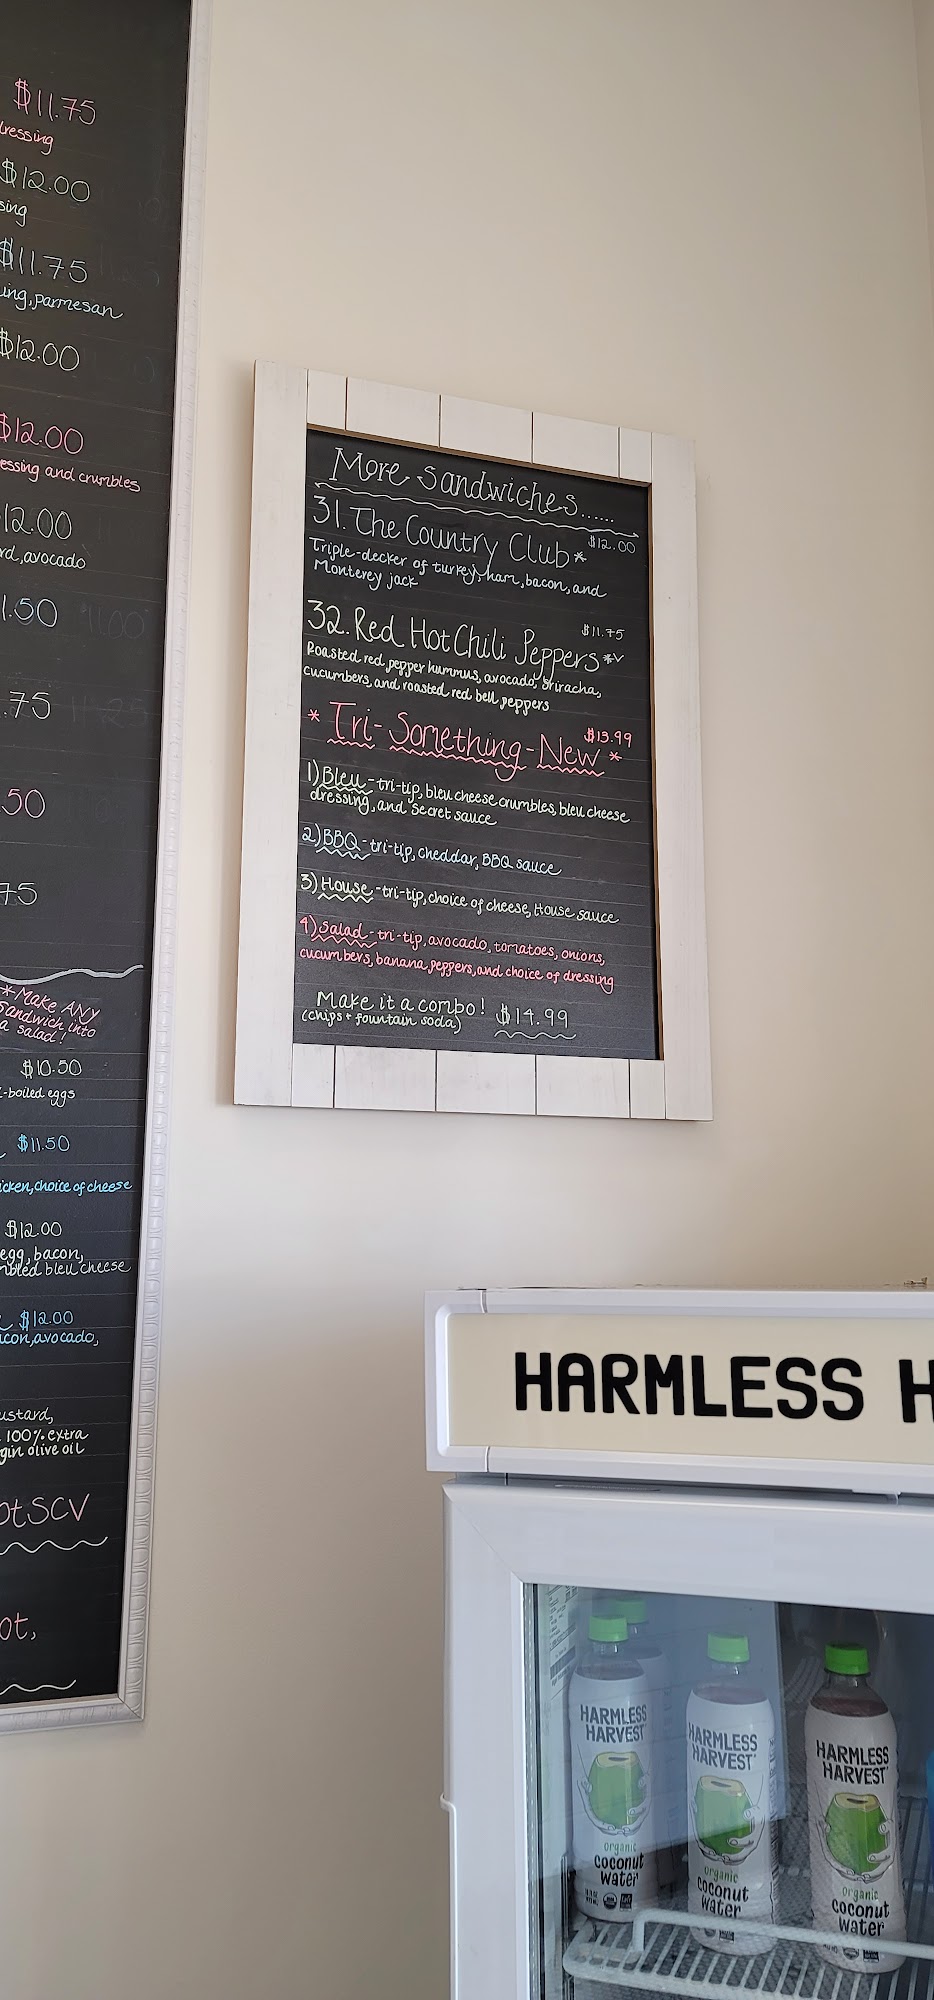 $11.75
dressing
$12.00
$11.75
parmesan
$12.00
$12.00
and crumbles
12.00
avocado
.50
.75
.50
75
*Make ANY
Sandwich into
a salad!
$10.50
-boiled eggs
$11.50
choice of cheese
$12.00
egg, bacon,
bleu cheese
$12.00
avocado,
100% extra
olive oil
More Sandwiches......
31. The Country Club* $12.00
Triple-decker of turkey, ham, bacon, and
Monterey jack
32. Red Hot Chili Peppers*v $11.75
Roasted red pepper hummus, avocado, Sriracha,
cucumbers, and roasted red bell peppers
* Tri-Something-New * $13.99
1) Bleu - tri-tip, bleu cheese crumbles, bleu cheese
dressing, and Secret sauce
2) BBQ - tri-tip, cheddar, BBQ sauce
3) House - tri-tip, choice of cheese, House sauce
4) Salad - tri-tip, avocado, tomatoes, onions,
cucumbers, banana peppers, and choice of dressing
Make it a combo!
(chips + fountain soda) $14.99
HARMLESS H
HARMLESS
HARVEST
organic
coconut
water
HARMLESS
HARVEST
organic
coconut
water
HARMLESS
HARVEST
organic
coconut
water